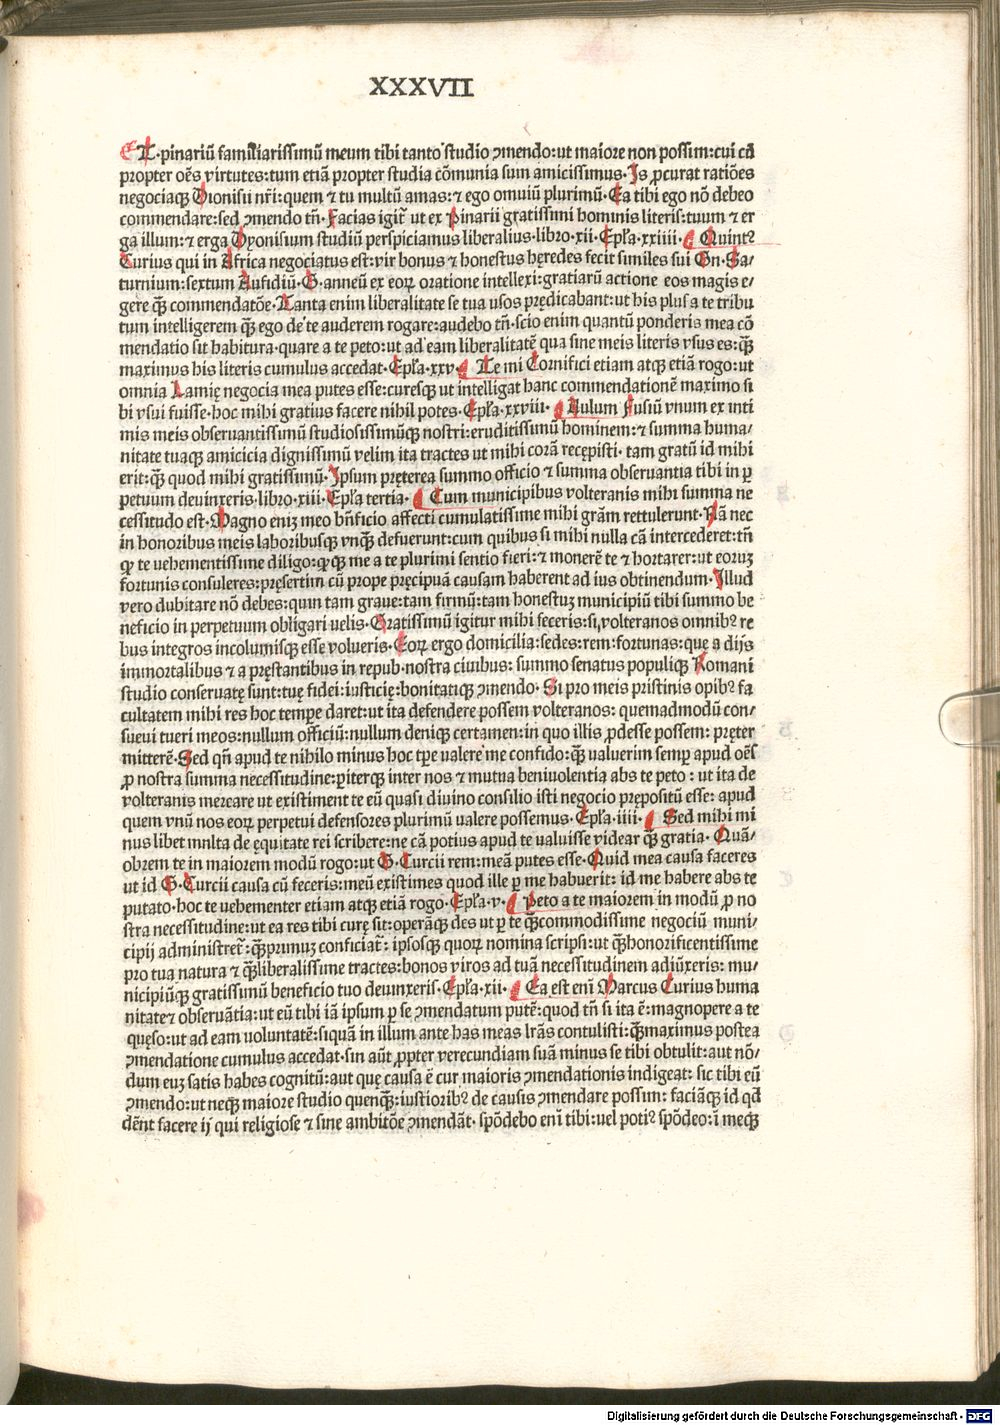 XXXVII
T·pinariū familiarissimū meum tibi tanto studio ꝯmendo:ut maiore non possim:cui cū
propter oēs virtutes:tum etiā propter studia cōmunia sum amicissimus·Is ꝓcurat ratiōes
negociaqꝫ Dionisii nr̄i:quem ⁊ tu multū amas:⁊ ego omuiū plurimū·Ea tibi ego nō debeo
commendare:sed ꝯmendo tñ·Facias igit᷑ ut ex Pinarii gratissimi hominis literis:tuum ⁊ er
ga illum:⁊ erga Dyonisium studiū perspiciamus liberalius·libro·xii·Epl̄a·xxiiii· Quintꝰ
Turius qui in Africa negociatus est:vir bonus ⁊ honestus hęredes fecit similes sui Gn·Sa/
turnium:sextum Aufidiū·G·anneū ex eoꝝ oratione intellexi:gratiarū actione eos magis e/
gere qꝫ̄ commendatōe·Tanta enim liberalitate se tua usos prędicabant:ut his plus a te tribu
tum intelligerem qꝫ̄ ego de te auderem rogare:audebo tñ·scio enim quantū ponderis mea cō
mendatio sit habitura·quare a te peto:ut ad eam liberalitatē qua sine meis literis vsus es:qꝫ̄
maximus his literis cumulus accedat·Epl̄a·xxv· Te mi Cornifici etiam atqꝫ etiā rogo:ut
omnia Lamię negocia mea putes esse:curesqꝫ ut intelligat hanc commendationē maximo si
bi vsui fuisse·hoc mihi gratius facere nihil potes·Epl̄a·xxviii· Aulum Fusiū vnum ex inti
mis meis observantissimū studiosissimūqꝫ nostri:eruditissimū hominem:⁊ summa huma/
nitate tuaqꝫ amicicia dignissimū velim ita tractes ut mihi corā recępisti·tam gratū id mihi
erit:qꝫ̄ quod mihi gratissimū·Ipsum pręterea summo officio ⁊ summa observantia tibi in ꝑ
petuum devinxeris·libro·xiii·Epl̄a tertia· Cum municipibus volteranis mihi summa ne
cessitudo est·Magno eniꝫ meo bn̄ficio affecti cumulatissime mihi grām rettulerunt·Nā nec
in honoribus meis laboribusqꝫ vnqꝫ̄ defuerunt:cum quibus si mihi nulla cā intercederet:tñ
qꝛ te vehementissime diligo:ꝙqꝫ me a te plurimi sentio fieri:⁊ monerē te ⁊ hortarer:ut eoruꝫ
fortunis consuleres:pręsertim cū prope pręcipuā causam haberent ad ius obtinendum·Illud
vero dubitare nō debes:quin tam graue:tam firmū:tam honestuꝫ municipiū tibi summo be
neficio in perpetuum obligari velis·Gratissimū igitur mihi feceris:si volteranos omnibꝰ re
bus integros incolumisqꝫ esse volueris·Eoꝝ ergo domicilia:sedes:rem:fortunas:que a dijs
immortalibus ⁊ a pręstantibus in repub·nostra civibus: summo senatus populiqꝫ Romani
studio conservatę sunt:tuę fidei:iusticię:bonitatiqꝫ ꝯmendo· Si pro meis pristinis opibꝰ fa
cultatem mihi res hoc tempe daret:ut ita defendere possem volteranos: quemadmodū con/
suevi tueri meos:nullum officiū:nullum deniqꝫ certamen:in quo illis ꝓdesse possem: pręter
mitterē·Sed qn̄ apud te nihilo minus hoc tꝑe valere me confido:qꝫ̄ valuerim semꝑ apud oēs
ꝓ nostra summa necessitudine:ꝑiterqꝫ inter nos ⁊ mutua benivolentia abs te peto : ut ita de
volteranis mereare ut existiment te eū quasi divino consilio isti negocio prępositū esse: apud
quem vnū nos eoꝝ perpetui defensores plurimū valere possemus·Epl̄a·iiii· Sed mihi mi
nus libet mnlta de ęquitate rei scribere:ne cā potius apud te valuisse videar qꝫ̄ gratia· Quā/
obrem te in maiorem modū rogo:ut G·Curcii rem:meā putes esse·Quid mea causa faceres
ut id G·Curcii causa cū feceris:meū existimes quod ille ꝑ me habuerit: id me habere abs te
putato·hoc te vehementer etiam atqꝫ etiā rogo·Epl̄a·v· Peto a te maiorem in modū ꝓ no
stra necessitudine:ut ea res tibi curę sit:operāqꝫ des ut ꝑ te qꝫ̄commodissime negociū muni/
cipij administret᷑:qꝫ̄primuꝫ conficiat᷑: ipsosqꝫ quoꝝ nomina scripsi:ut qꝫ̄honorificentissime
pro tua natura ⁊ qꝫ̄liberalissime tractes:bonos viros ad tuā necessitudinem adiūxeris: mu/
nicipiūqꝫ gratissimū beneficio tuo devinxeris·Epl̄a·xii· Ea est eni᷑ Marcus Curius huma
nitate⁊ observātia:ut eū tibi iā ipsum ꝑ se ꝯmendatum putē:quod tñ si ita ē:magnopere a te
quęso:ut ad eam voluntatē:siquā in illum ante has meas lrās contulisti:qꝫ̄maximus postea
ꝯmendatione cumulus accedat·sin aūt ꝓpter verecundiam suā minus se tibi obtulit:aut nō/
dum euꝫ satis habes cognitū:aut quę causa ē cur maioris ꝯmendationis indigeat: sic tibi eū
ꝯmendo:ut neqꝫ maiore studio quenqꝫ̄:iustioribꝰ de causis ꝯmendare possim: faciāqꝫ id qd̄
dēnt facere ij qui religiose ⁊ sine ambitōe ꝯmendāt· spōdebo eni᷑ tibi:vel potiꝰ spōdeo:ī meqꝫ
Digitalisierung gefördert durch die Deutsche Forschungsgemeinschaft - DFG